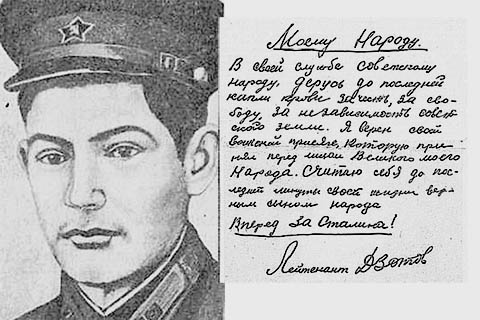 Моему Народу.
В своей службе советскому
народу, дерусь до последней
капли крови за честь, за сво-
боду, за независимость советс-
ского земли. Я верен своей
воинской присяге, которую при-
нял перед лицом Великого моего
Народа. Считаю себя до пос-
ледней минуты своей жизни вер-
ным сыном народа
Вперед За Сталина!
Лейтенант